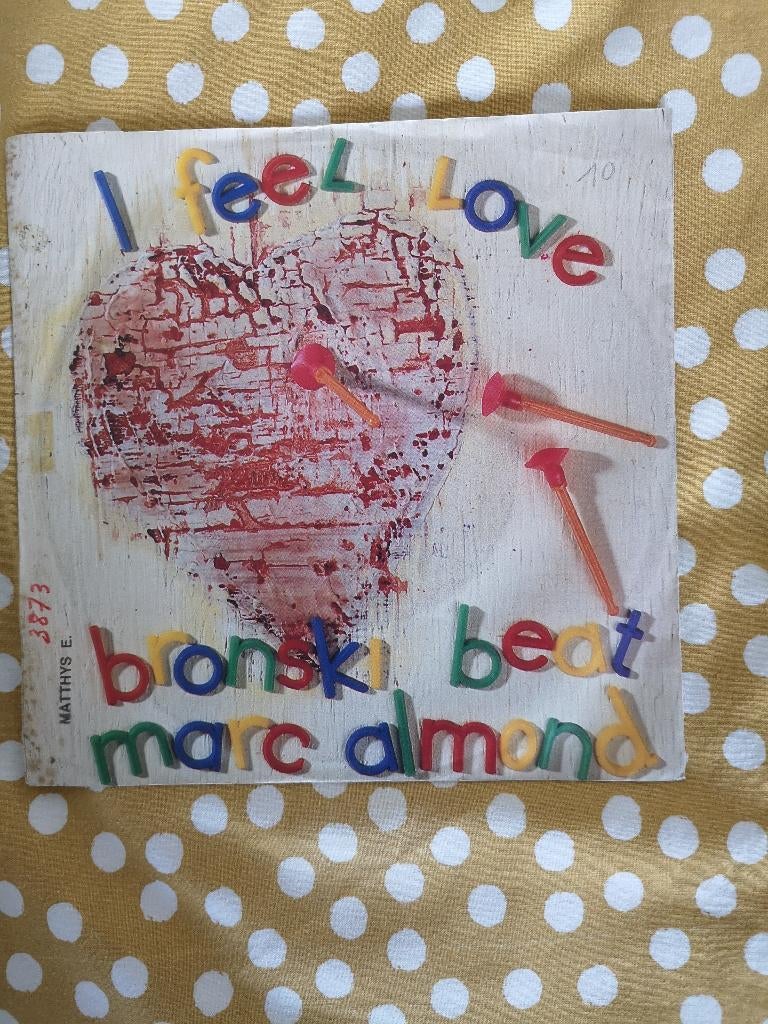 10
I feeL Love
3873
MATTHYS E.
bronski beat
marc almond